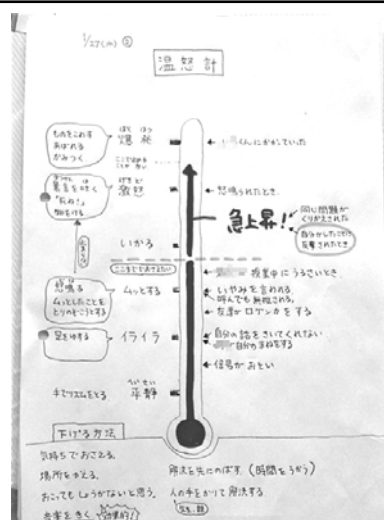 1/27(水) ②
温怒計
ものをこわす
あばれる
かみつく
ばく はつ
爆発
くんにかみついていた
ここで止める
暴言をはく
「死ね!」
げき ど
激怒
怒鳴られたとき。
急上昇!
同じ問題が
くりかえされた
自分がしたことに
反撃されたとき
いかる
ここまででおさえたい
授業中にうるさいとき。
怒鳴る
ムッとしたことを
とりのぞこうとする
ムッとする
いやみを言われる。
呼んでも無視される。
友達がロゲンカをする
足をゆする
イライラ
自分の話をきいてくれない
自分のまねをする
信号がおそい
手でリズムをとる
へいせい
平静
下げる方法
気持ちでおさえる。
場所をかえる。
おこってもしょうがないと思う。
音楽をきく
効果的!
解決を先にのばす (時間をつかう)
人の手をかりて解決する